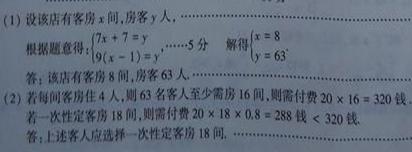 (1)设该店有客房x间,房客y人,…………
根据题意得:{7x+7=y, 9(x-1)=y,……5分 解得{x=8 y=63.
答:该店有客房8间,房客63人.…………
(2)若每间客房住4人,则63名客人至少需房16间,则需付费20×16=320钱.
若一次性定客房18间,则需付费20×18×0.8=288钱<320钱.
答:上述客人应选择一次性定客房18间.…………